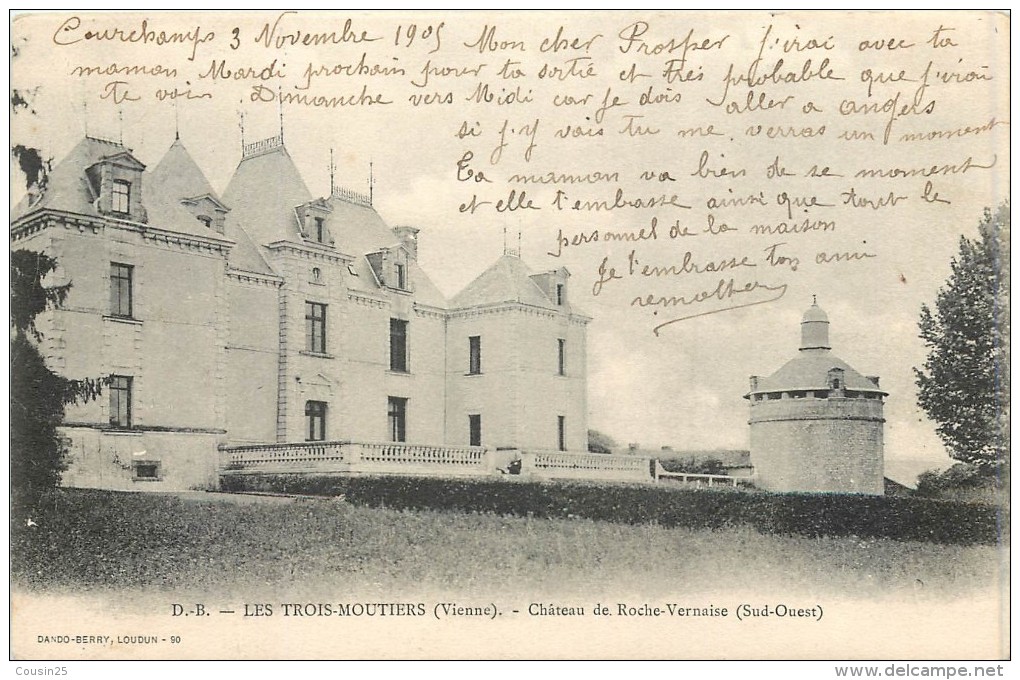 Courchamps 3 Novembre 1905 Mon cher Prosper J'irai avec ta
maman Mardi prochain pour ta sortie et très probable que J'irai
te voir Dimanche vers Midi car Je dois aller a angers
si J'y vais tu me verras un moment
Ta maman va bien de se moment
et elle t'embrasse ainsi que tout le
personnel de la maison
Je t'embrasse ton ami
D.-B. — LES TROIS-MOUTIERS (Vienne). - Château de Roche-Vernaise (Sud-Ouest)
DANDO-BERRY, LOUDUN - 90
Cousin25
www.delcampe.net